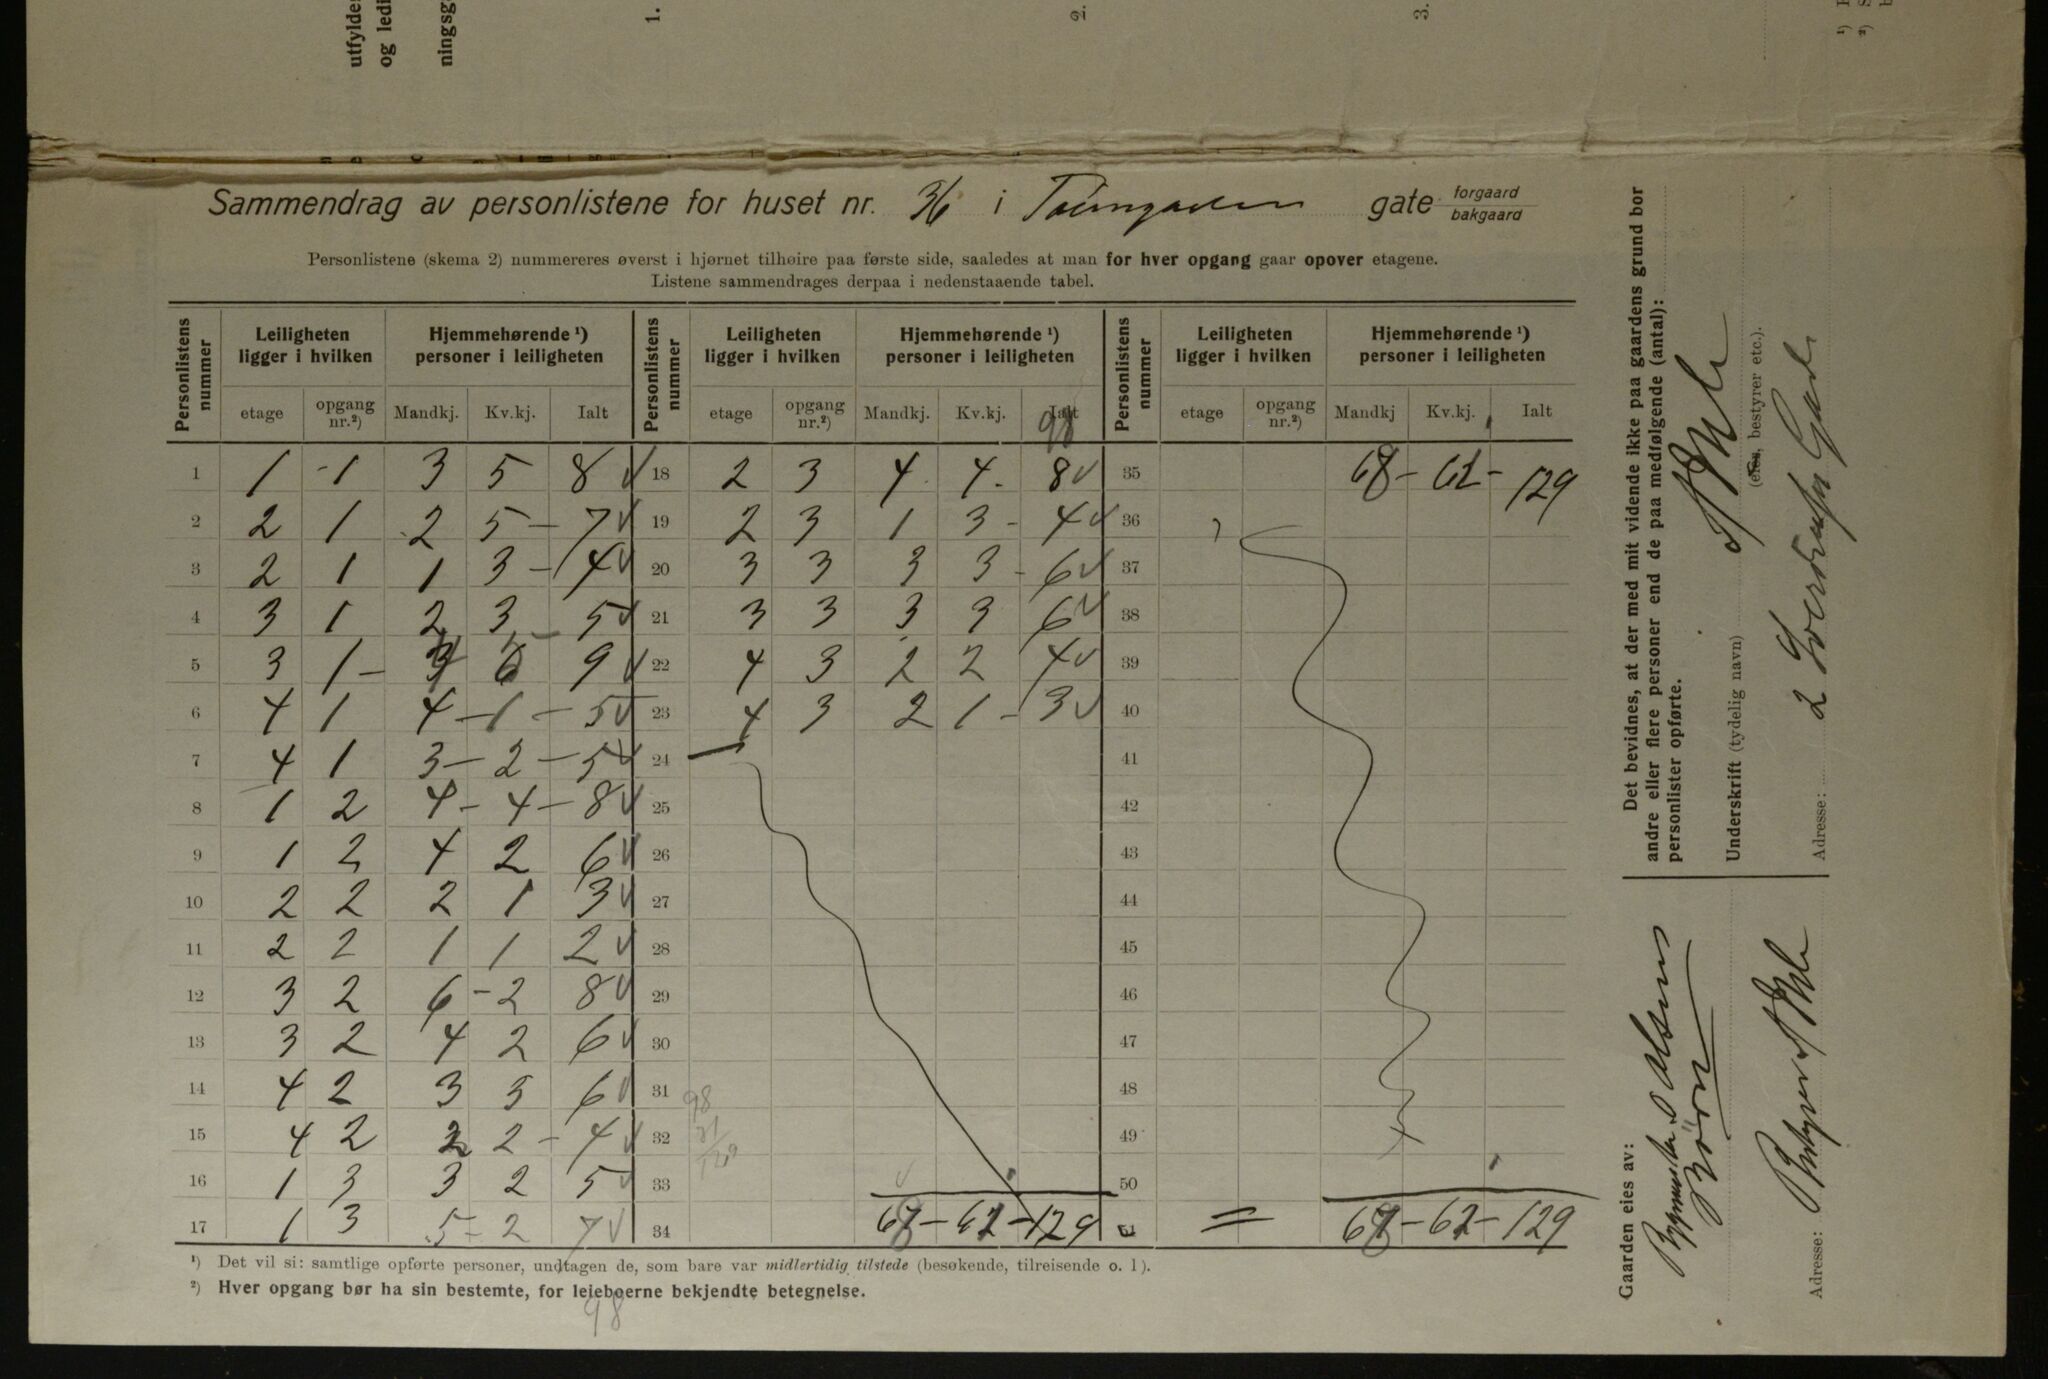 utfylde
og ledi
ningsg
1.
2.
3.
Sammendrag av personlistene for huset nr. 36 i gate forgaard
bakgaard
Personlistene (skema 2) nummereres øverst i hjørnet tilhøire paa første side, saaledes at man for hver opgang gaar opover etagene.
Listene sammendrages derpaa i nedenstaaende tabel.
Personlistens nummer | Leiligheten ligger i hvilken | Hjemmehørende ¹) personer i leiligheten | Personlistens nummer | Leiligheten ligger i hvilken | Hjemmehørende ¹) personer i leiligheten | Personlistens nummer | Leiligheten ligger i hvilken | Hjemmehørende ¹) personer i leiligheten
etage | opgang nr.²) | Mandkj. | Kv.kj. | Ialt | etage | opgang nr.²) | Mandkj. | Kv.kj. | Ialt | etage | opgang nr.²) | Mandkj | Kv.kj. | Ialt
98
1 1 -1 3 5 8 ✓ 18 2 3 4 4 8 ✓ 35 68 - 61 - 129
2 2 1 2 5 - 7 ✓ 19 2 3 1 3 - 4 ✓ 36
3 2 1 1 3 - 4 ✓ 20 3 3 3 3 - 6 ✓ 37
4 3 1 2 3 5 ✓ 21 3 3 3 3 6 ✓ 38
5 3 1 - 4 5 9 ✓ 22 4 3 2 2 4 ✓ 39
6 4 1 4 - 1 - 5 ✓ 23 4 3 2 1 - 3 ✓ 40
7 4 1 3 - 2 - 5 ✓ 24 41
8 1 2 4 - 4 - 8 ✓ 25 42
9 1 2 4 2 6 ✓ 26 43
10 2 2 2 1 3 ✓ 27 44
11 2 2 1 1 2 ✓ 28 45
12 3 2 6 - 2 8 ✓ 29 46
13 3 2 4 2 6 ✓ 30 47
14 4 2 3 3 6 ✓ 31 98 48
15 4 2 2 2 - 4 ✓ 32 31 49
129
16 1 3 3 2 5 ✓ 33 50
17 1 3 5 - 2 7 ✓ 34 68 - 61 - 129 = 68 - 61 - 129
¹) Det vil si: samtlige opførte personer, undtagen de, som bare var midlertidig tilstede (besøkende, tilreisende o. l).
²) Hver opgang bør ha sin bestemte, for leieboerne bekjendte betegnelse.
98
Det bevidnes, at der med mit vidende ikke paa gaardens grund bor
andre eller flere personer end de paa medfølgende (antal):
personlister opførte.
Underskrift (tydelig navn)
(eier, bestyrer etc.).
Adresse: 2 Gade
Gaarden eies av: Bygmester Olsens
Børn
Bestyrer
Adresse: